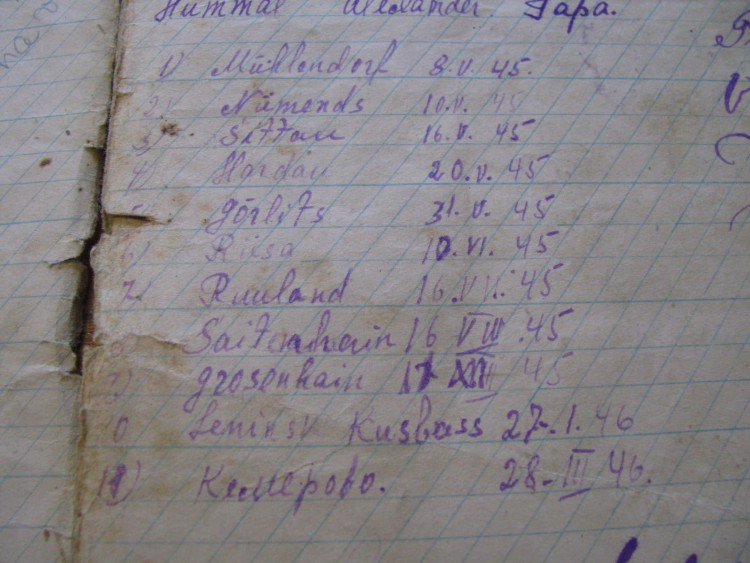 Hummal Alexander. Papa.
1) Mühlendorf 8.V. 45.
2) Nimends 10.V. 45
3) Sittau 16.V. 45
4) Hardau 20.V. 45
5) Görlits 31.V. 45
6) Riesa 10.VI. 45
7) Ruuland 16.VII. 45
8 Saitenhain 16 VIII.45
9) grosenhain 17 XIII 45
10 Leninsk Kusbass 27.I.46
11) Кемерово. 28-III 46.